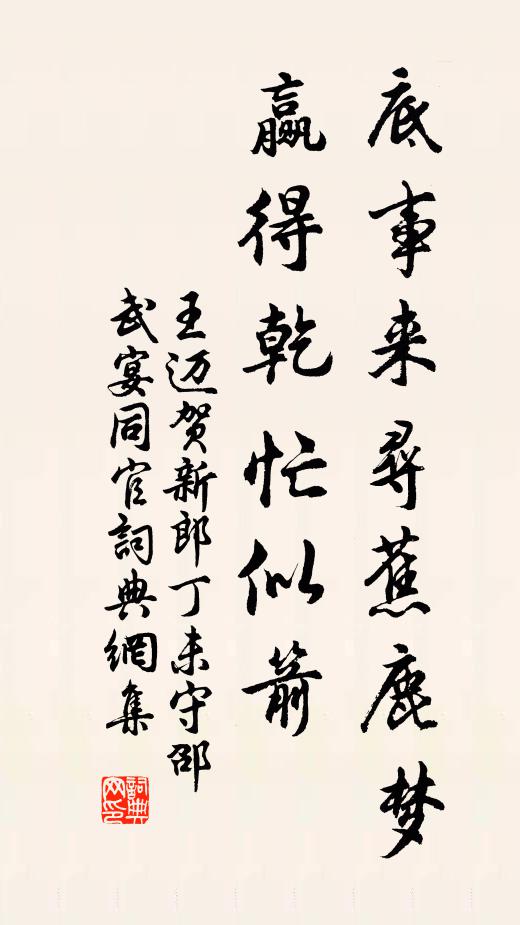 底事来尋蕉鹿梦
赢得乾忙似箭
王迈贺新郎丁未守邵
武宴同官詞典網集
詞典网印